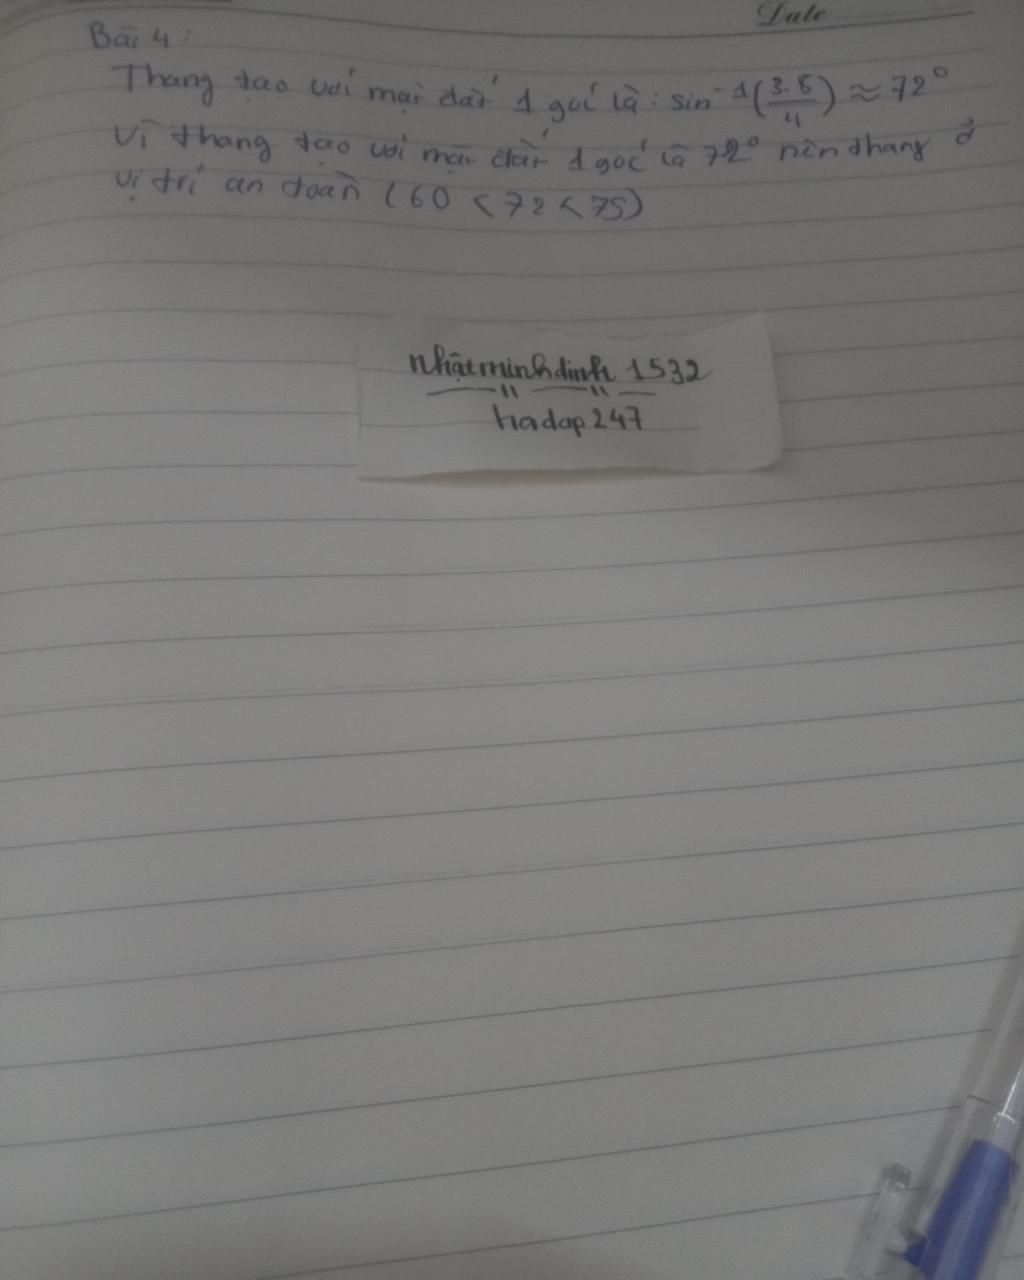 Date
Bài 4:
Thang tạo với mặt đất 1 góc là: sin⁻¹(3.8/4) ≈ 72°
Vì thang tạo với mặt đất 1 góc là 72° nên thang ở
vị trí an toàn (60 < 72 < 75)
nhậtminhdinh 1532
hadap247